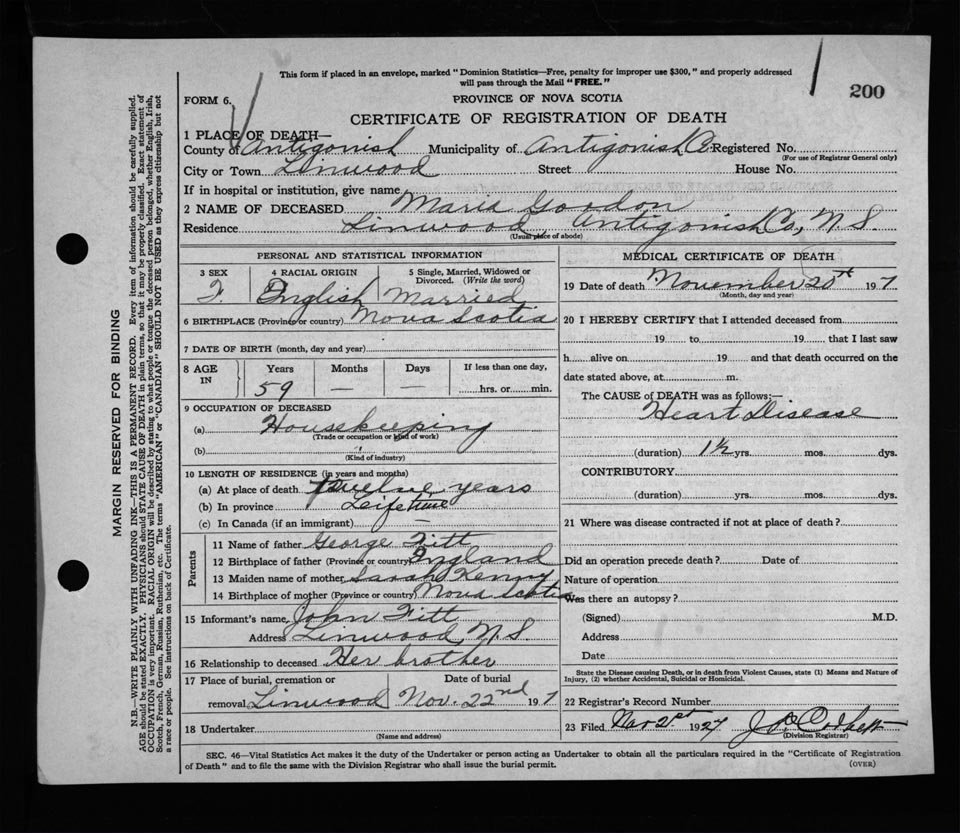 This form if placed in an envelope, marked "Dominion Statistics—Free, penalty for improper use $300," and properly addressed
will pass through the Mail "FREE."
200
FORM 6.
PROVINCE OF NOVA SCOTIA
CERTIFICATE OF REGISTRATION OF DEATH
1 PLACE OF DEATH—
County of Antigonish Municipality of Antigonish Co Registered No.
(For use of Registrar General only)
City or Town Linwood Street House No.
If in hospital or institution, give name
2 NAME OF DECEASED Maria Gordon
Residence Linwood, Antigonish Co, N.S.
(Usual place of abode)
PERSONAL AND STATISTICAL INFORMATION
3 SEX 4 RACIAL ORIGIN 5 Single, Married, Widowed or
Divorced. (Write the word)
F English Married
6 BIRTHPLACE (Province or country) Nova Scotia
7 DATE OF BIRTH (month, day and year)
8 AGE IN Years Months Days If less than one day,
59 — — hrs. or min.
9 OCCUPATION OF DECEASED
(a) Housekeeping
(Trade or occupation or kind of work)
(b) "
(Kind of industry)
10 LENGTH OF RESIDENCE (in years and months)
(a) At place of death Twelve years
(b) In province Lifetime
(c) In Canada (if an immigrant) —
Parents
11 Name of father George Fitt
12 Birthplace of father (Province or country) England
13 Maiden name of mother Sarah Kenny
14 Birthplace of mother (Province or country) Nova Scotia
15 Informant's name John Fitt
Address Linwood, N.S
16 Relationship to deceased Her brother
17 Place of burial, cremation or Date of burial
removal Linwood Nov. 22nd 1927
18 Undertaker
(Name and address)
MEDICAL CERTIFICATE OF DEATH
19 Date of death November 20th 1927
(Month, day and year)
20 I HEREBY CERTIFY that I attended deceased from
19 to 19 that I last saw
h alive on 19 and that death occurred on the
date stated above, at m.
The CAUSE of DEATH was as follows:—
Heart Disease
(duration) 1½ yrs. mos. dys.
CONTRIBUTORY
(duration) yrs. mos. dys.
21 Where was disease contracted if not at place of death?
Did an operation precede death? Date of
Nature of operation
Was there an autopsy?
(Signed) M.D.
Address
Date
State the Disease causing Death, or in death from Violent Causes, state (1) Means and Nature of
Injury, (2) whether Accidental, Suicidal or Homicidal.
22 Registrar's Record Number
23 Filed Nov 21st 1927
(Division Registrar)
SEC. 46—Vital Statistics Act makes it the duty of the Undertaker or person acting as Undertaker to obtain all the particulars required in the "Certificate of Registration
of Death" and to file the same with the Division Registrar who shall issue the burial permit.
(OVER)
MARGIN RESERVED FOR BINDING
N.B.—WRITE PLAINLY WITH UNFADING INK—THIS IS A PERMANENT RECORD. Every item of information should be carefully supplied.
AGE should be stated EXACTLY. PHYSICIANS should STATE CAUSE OF DEATH in plain terms, so that it may be properly classified. Exact statement of
OCCUPATION is very important. RACIAL ORIGIN will be described by stating to what people or tongue the deceased person belonged, whether English, Irish,
Scotch, French, German, Russian, Ruthenian, etc. The terms "AMERICAN" or "CANADIAN" SHOULD NOT BE USED as they express citizenship but not
a race or people. See instructions on back of Certificate.